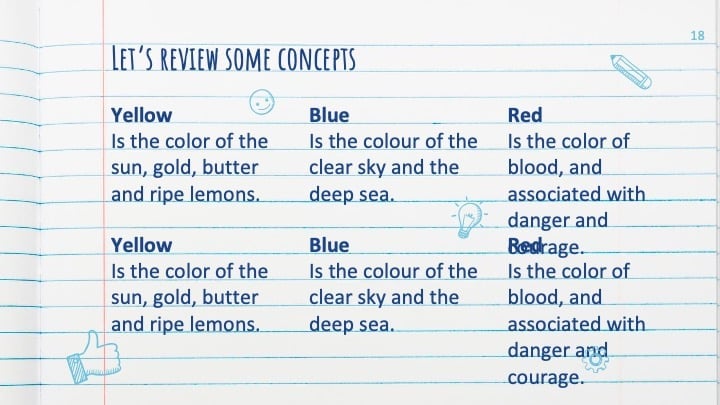 18
LET'S REVIEW SOME CONCEPTS
Yellow
Is the color of the
sun, gold, butter
and ripe lemons.
Blue
Is the colour of the
clear sky and the
deep sea.
Red
Is the color of
blood, and
associated with
danger and
courage.
Yellow
Is the color of the
sun, gold, butter
and ripe lemons.
Blue
Is the colour of the
clear sky and the
deep sea.
Red
Is the color of
blood, and
associated with
danger and
courage.